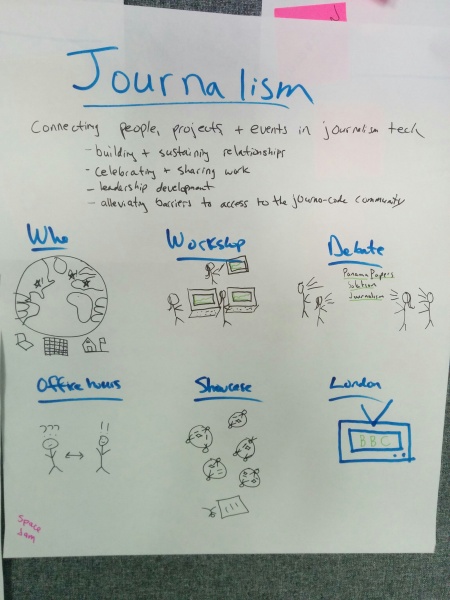 Journalism
Connecting people, projects + events in journalism tech
- building + sustaining relationships
- celebrating + sharing work
- leadership development
- alleviating barriers to access to the journo-code community
Who
Workshop
Debate
Panama Papers
Solutions
Journalism
Office hours
Showcase
London
???
!!
BBC
Space
Jam